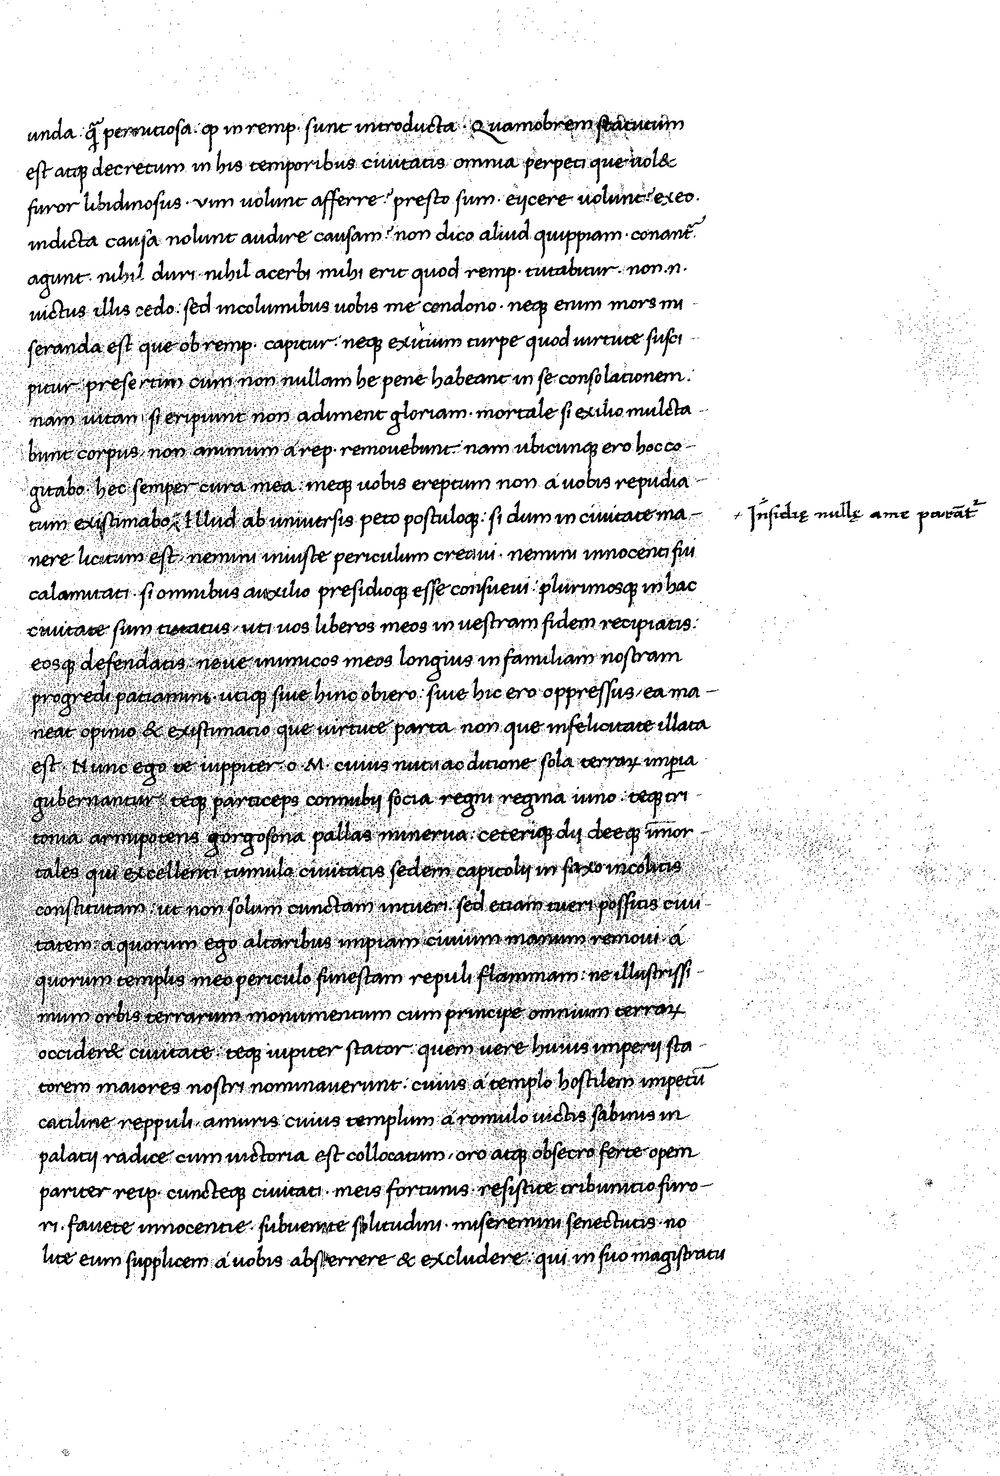 unda. q̃ꝫ perniciosa. ꝙ in remp. sunt introducta. Quamobrem statutum
est atqꝫ decretum in his temporibus ciuitatis omnia perpeti que uol&
furor libidinosus. vim uolunt afferre? presto sum. eijcere uolunt? exeo.
indicta causa nolunt audire causam? non dico aliud quippiam. conant̃.
agunt. nihil duri. nihil acerbi mihi erit quod remp. tutabitur. non .n.
uictus illis cedo: sed incolumibus uobis me condono. neqꝫ enim mors mi-
seranda est que ob remp. capitur. neqꝫ exitium turpe quod uirtute susci-
pitur. presertim cum non nullam he pene habeant in se consolationem.
nam uitam si eripiunt non adiment gloriam. mortale si exilio mulcta-
bunt corpus, non animum á rep. remouebunt. nam ubicunqꝫ ero hoc co-
gitabo. hec semper cura mea. meqꝫ uobis ereptum non á uobis repudia-
tum existimabo. Illud ab uniuersis peto postuloqꝫ: si dum in ciuitate ma-
+ Insidię nullę a me parãt̃
nere licitum est. nemini iniuste periculum creaui. nemini innocenti fui
calamitati. si omnibus auxilio presidioqꝫ esse consueui: plurimosqꝫ in hac
ciuitate sum tutatus, uti uos liberos meos in uestram fidem recipiatis:
eosqꝫ defendatis. neue inimicos meos longius in familiam nostram
progredi patiamini. utiqꝫ siue hinc obiero: siue hic ero oppressus, ea ma-
neat opinio & existimatio que virtute parta non que infelicitate illata
est. Nunc ego te iuppiter. o. M. cuius nutu ac ditione sola terraꝝ imꝑia
gubernantur: teqꝫ particeps connubij socia regni regina iuno: teqꝫ tri-
tonia armipotens gorgofona pallas minerua: ceteriqꝫ dij deeqꝫ im̃or-
tales qui excellenti tumulo ciuitatis sedem capitolij in saxo incolitis
constitutam: ut non solum cunctam intueri. sed etiam tueri possitis ciui-
tatem: a quorum ego altaribus impiam ciuium manum remoui. á
quorum templis meo periculo funestam repuli flammam: ne illustrissi-
mum orbis terrarum monumentum cum principe omnium terraꝝ
occider& ciuitate: teqꝫ iupiter stator. quem uere huius imperij sta-
torem maiores nostri nominauerunt: cuius á templo hostilem impetũ
catiline reppuli, a muris cuius templum á romulo uictis sabinis in
palatij radice cum uictoria est collocatum, oro atqꝫ obsecro ferte opem
pariter reip. cuncteqꝫ ciuitati. meis fortunis. resistite tribunitio furo-
ri. fauete innocentie. subuenite solitudini. miseremini senectutis. no
lite eum supplicem á uobis absterrere & excludere. qui in suo magistratu